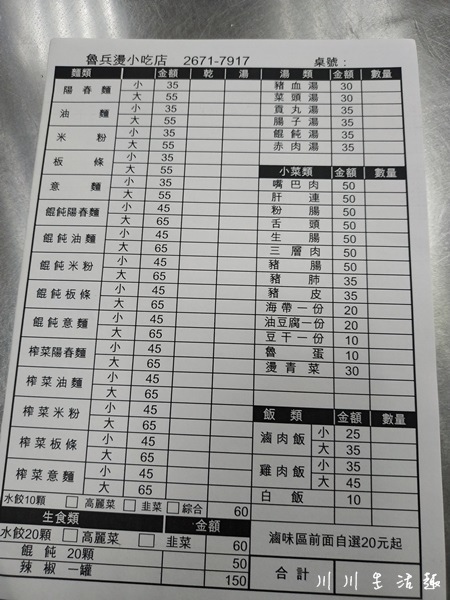 魯兵燙小吃店 2671-7917 桌號：
麵類 金額 乾 湯
陽春麵 小 35
大 55
油麵 小 35
大 55
米粉 小 35
大 55
板條 小 35
大 55
意麵 小 35
大 55
餛飩陽春麵 小 45
大 65
餛飩油麵 小 45
大 65
餛飩米粉 小 45
大 65
餛飩板條 小 45
大 65
餛飩意麵 小 45
大 65
榨菜陽春麵 小 45
大 65
榨菜油麵 小 45
大 65
榨菜米粉 小 45
大 65
榨菜板條 小 45
大 65
榨菜意麵 小 45
大 65
水餃10顆 □高麗菜 □韭菜 □綜合 60
生食類 金額
水餃20顆 □高麗菜 □韭菜 60
餛飩 20顆 50
辣椒 一罐 150
湯類 金額 數量
豬血湯 30
菜頭湯 30
貢丸湯 35
腸子湯 35
餛飩湯 35
赤肉湯 35
小菜類 金額 數量
嘴巴肉 50
肝連 50
粉腸 50
舌頭 50
生腸 50
三層肉 50
豬腸 50
豬肺 35
豬皮 35
海帶一份 20
油豆腐一份 20
豆干一份 10
魯蛋 10
燙青菜 30
飯類 金額 數量
滷肉飯 小 25
大 35
雞肉飯 小 35
大 45
白飯 10
滷味區前面自選20元起
合計
川川生活趣